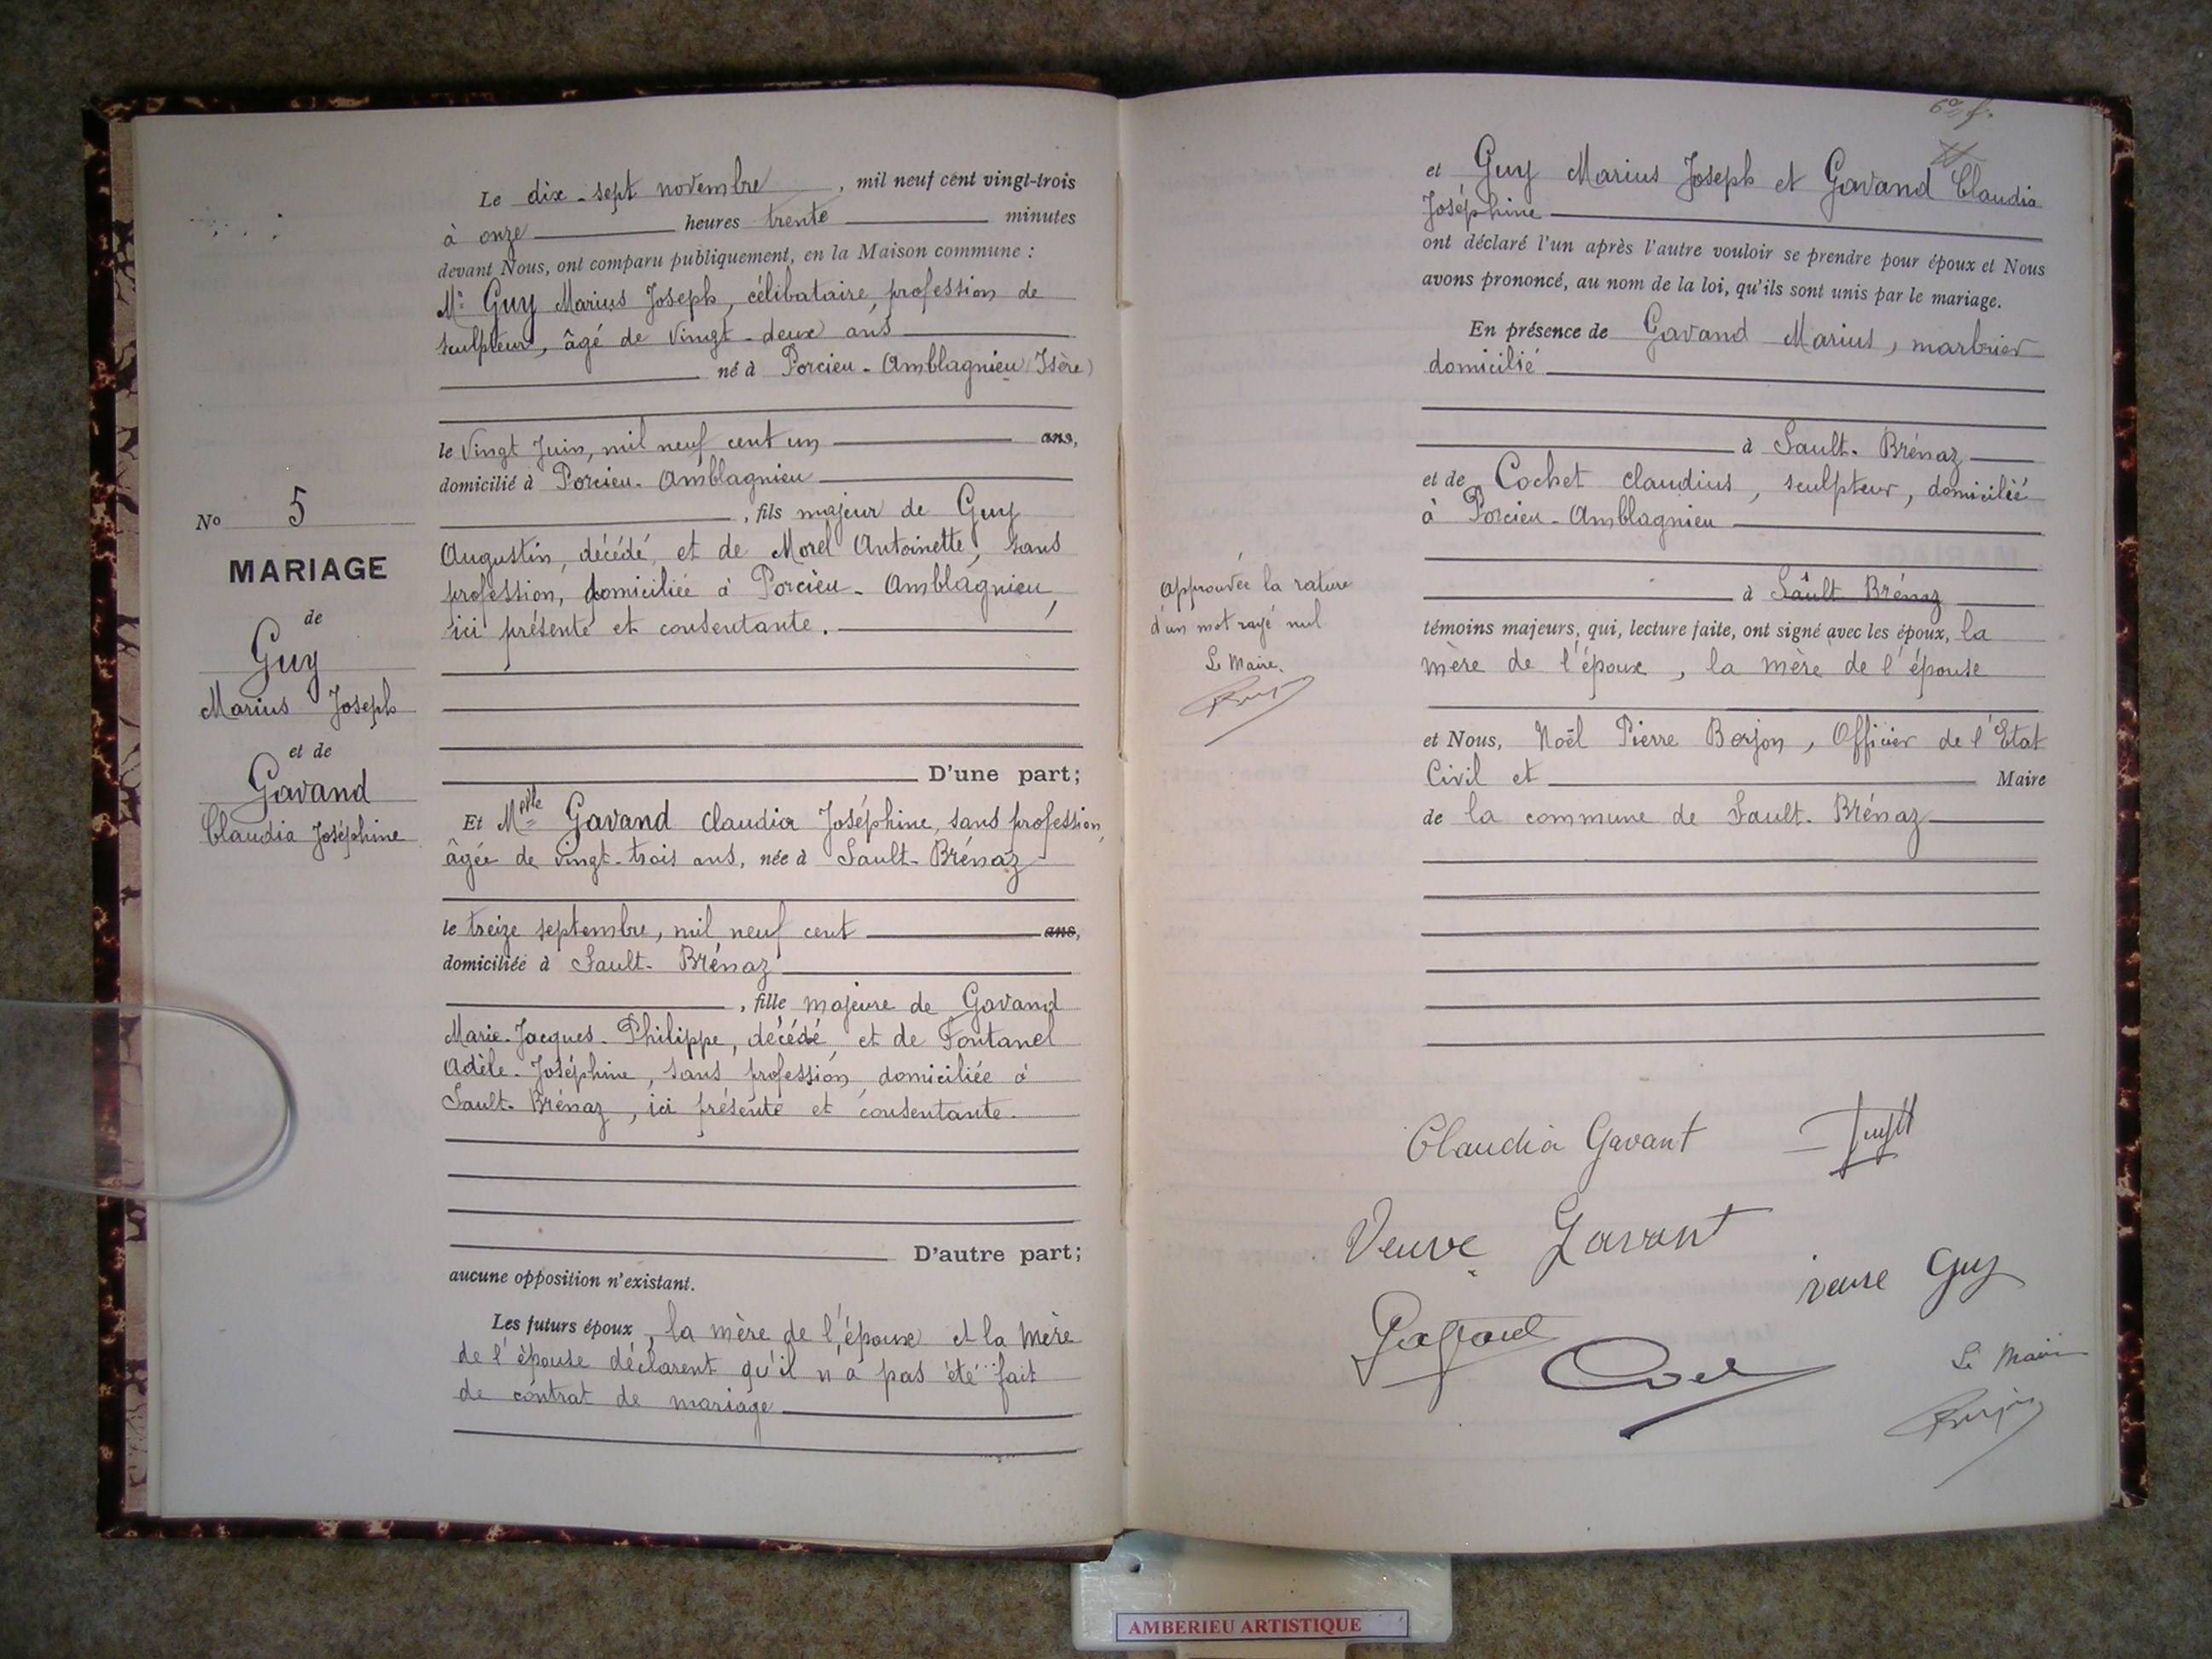 Le dix-sept novembre, mil neuf cent vingt-trois
à onze heures trente minutes
devant Nous, ont comparu publiquement, en la Maison commune :
Mr Guy Marius Joseph, célibataire, profession de
sculpteur, âgé de vingt-deux ans
né à Porcieu-Amblagnieu (Isère)
le vingt Juin, mil neuf cent un ans,
domicilié à Porcieu-Amblagnieu
, fils majeur de Guy
Augustin, décédé, et de Morel Antoinette, sans
profession, domiciliée à Porcieu-Amblagnieu,
ici présente et consentante.
D'une part;
Et Melle Gavand Claudia Joséphine, sans profession,
âgée de vingt-trois ans, née à Sault-Brénaz
le treize septembre, mil neuf cent ans,
domiciliée à Sault-Brénaz
, fille majeure de Gavand
Marie-Jacques-Philippe, décédé, et de Fontanel
Adèle-Joséphine, sans profession, domiciliée à
Sault-Brénaz, ici présente et consentante.
D'autre part;
aucune opposition n'existant.
Les futurs époux, la mère de l'époux et la mère
de l'épouse déclarent qu'il n'a pas été fait
de contrat de mariage
No 5
MARIAGE
de
Guy
Marius Joseph
et de
Gavand
Claudia Joséphine
et Guy Marius Joseph et Gavand Claudia
Joséphine
ont déclaré l'un après l'autre vouloir se prendre pour époux et Nous
avons prononcé, au nom de la loi, qu'ils sont unis par le mariage.
En présence de Gavand Marius, marbrier
domicilié
à Sault-Brénaz
et de Cochet Claudius, sculpteur, domicilié
à Porcieu-Amblagnieu
à Sault-Brénaz
témoins majeurs, qui, lecture faite, ont signé avec les époux, la
mère de l'époux, la mère de l'épouse
et Nous, Noël Pierre Berjon, Officier de l'Etat
Civil et Maire
de la commune de Sault-Brénaz
approuvée la rature
d'un mot rayé nul
Le Maire.
Claudia Gavant
Veuve Gavant
veuve Guy
Le Maire
Berjon
AMBERIEU ARTISTIQUE